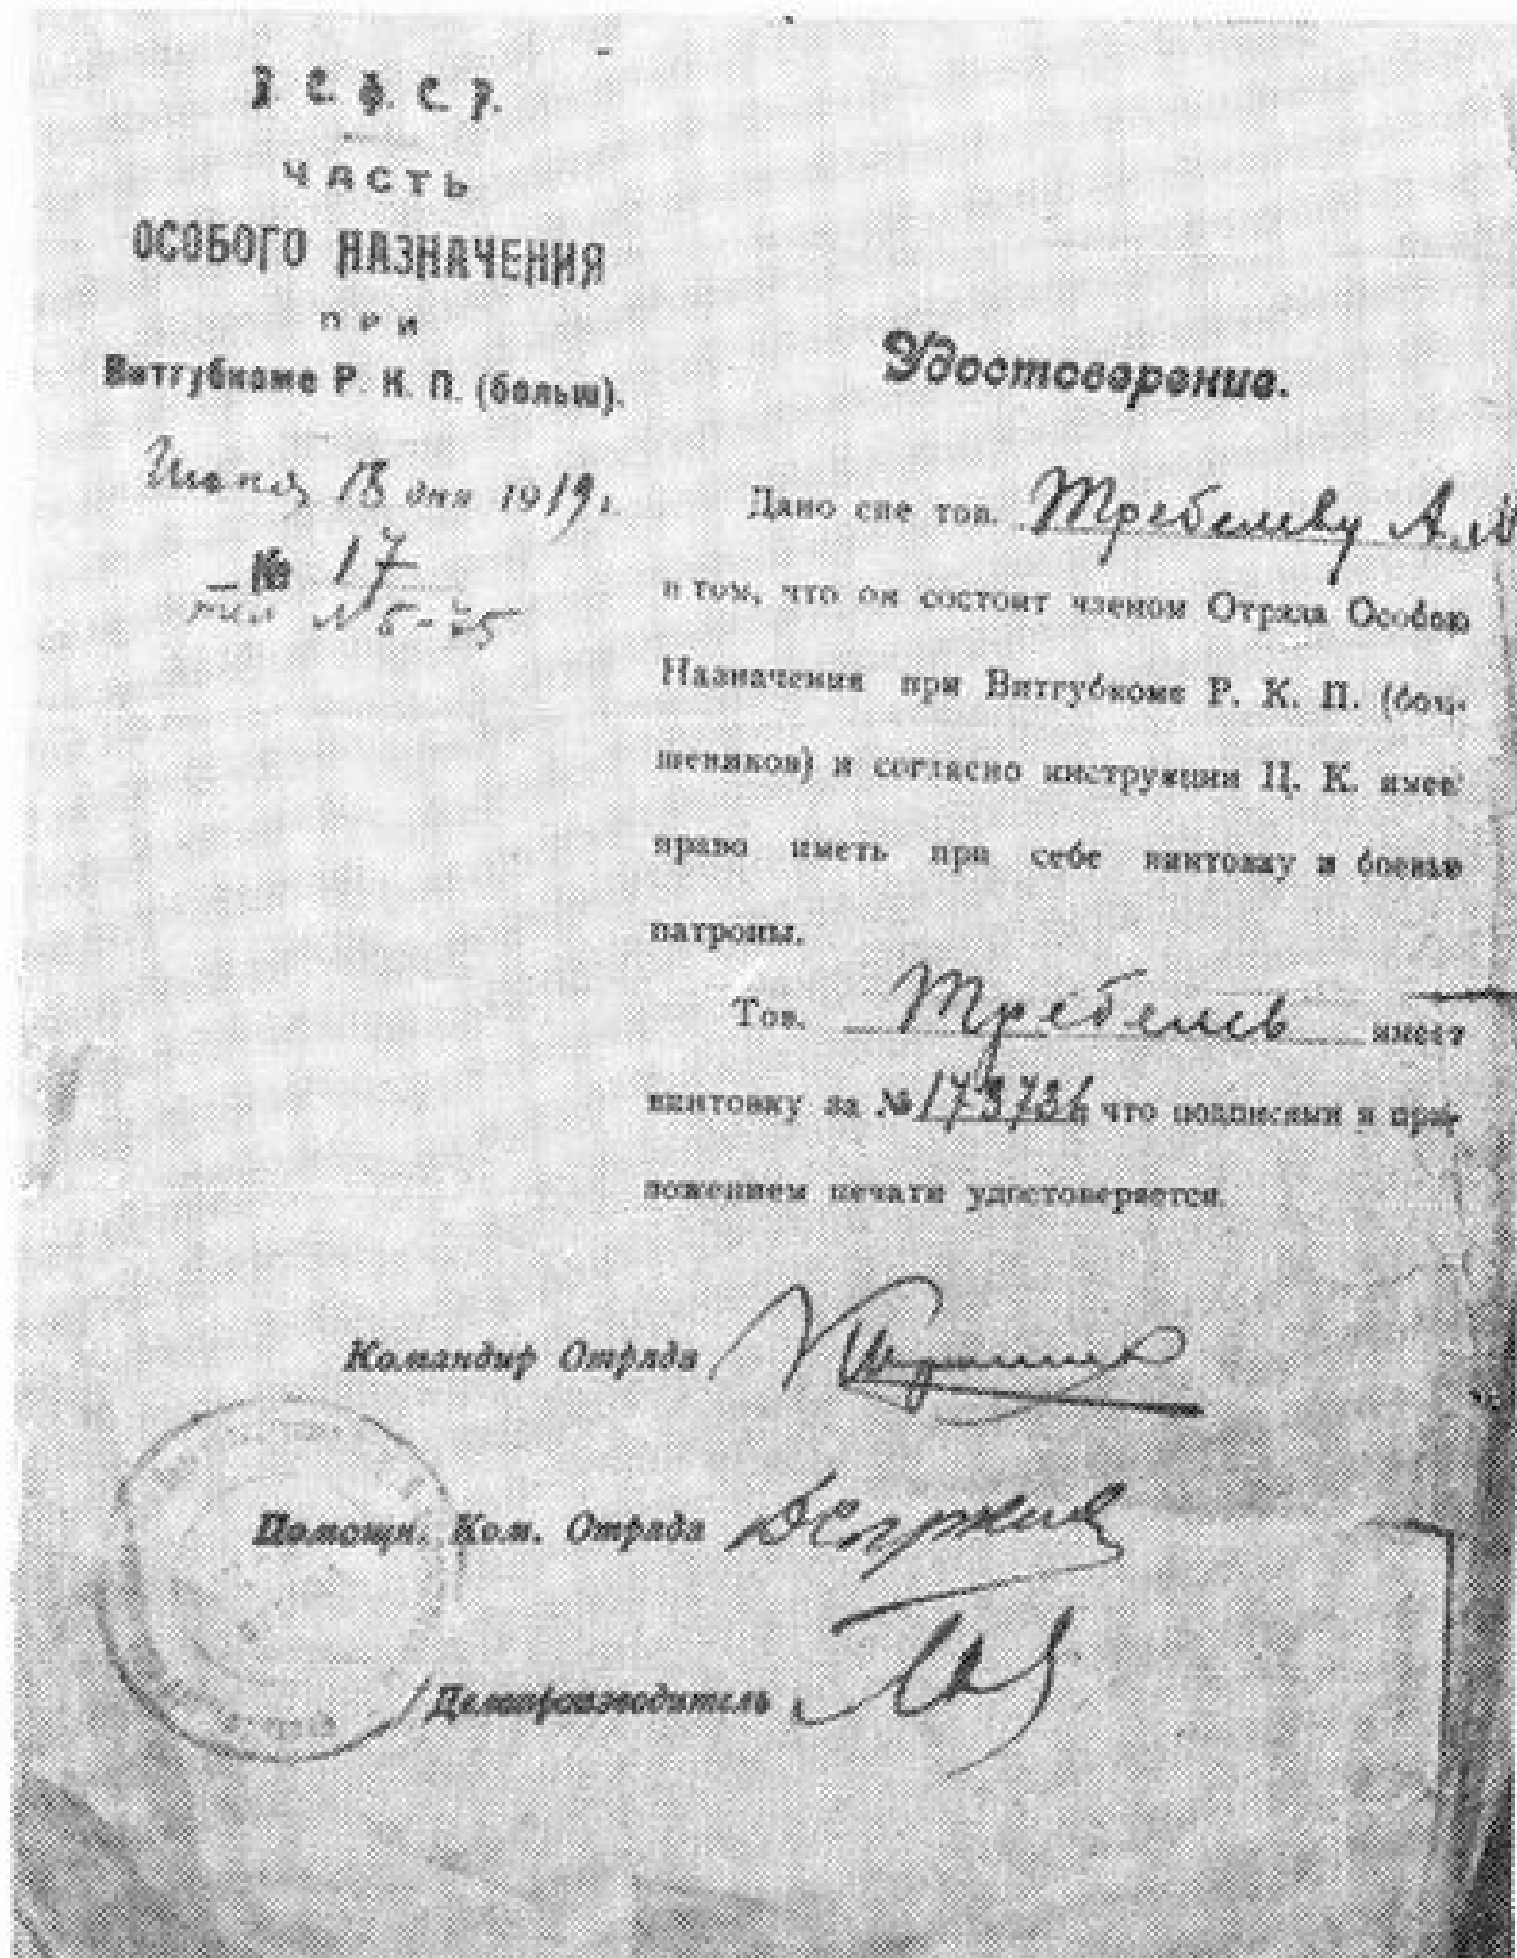 Р. С. Ф. С. Р.
ЧАСТЬ
ОСОБОГО НАЗНАЧЕНИЯ
ПРИ
Витгубкоме Р. К. П. (больш).
18 дня 1919 г.
№ 17
тел № 5-25
Удостоверение.
Дано сие тов. Требелеву А. М
в том, что он состоит членом Отряда Особого
Назначения при Витгубкоме Р. К. П. (боль-
шевиков) и согласно инструкции Ц. К. имеет
право иметь при себе винтовку и боевые
патроны.
Тов. Требелев имеет
винтовку за № 173736 что подписями и при-
ложением печати удостоверяется.
Командир Отряда
Помощн. Ком. Отряда
Делопроизводитель